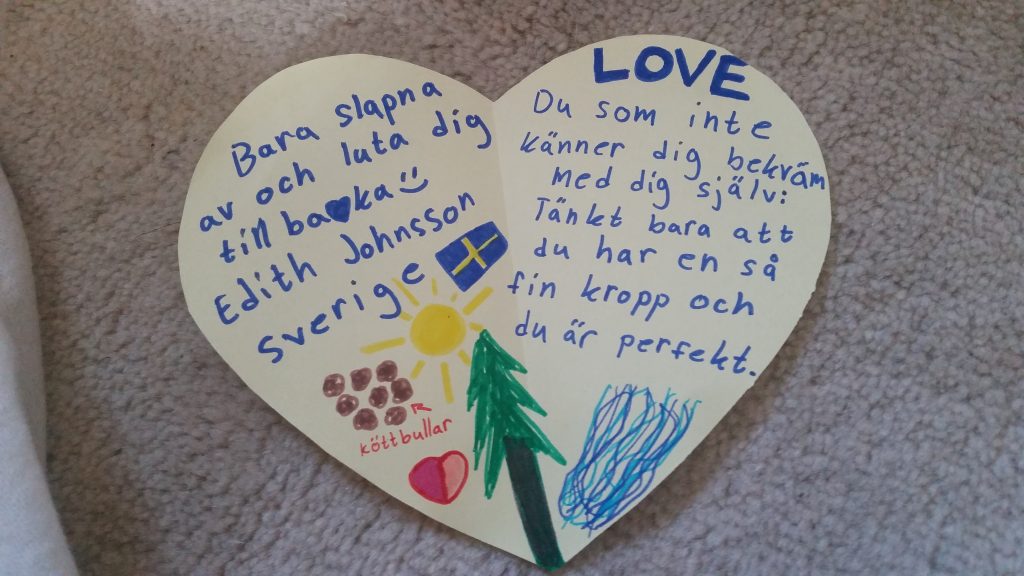 Bara slapna
av och luta dig
till baka
Edith Johnsson
sverige
köttbullar
LOVE
Du som inte
känner dig bekväm
med dig själv:
Tänkt bara att
du har en så
fin kropp och
du är perfekt.